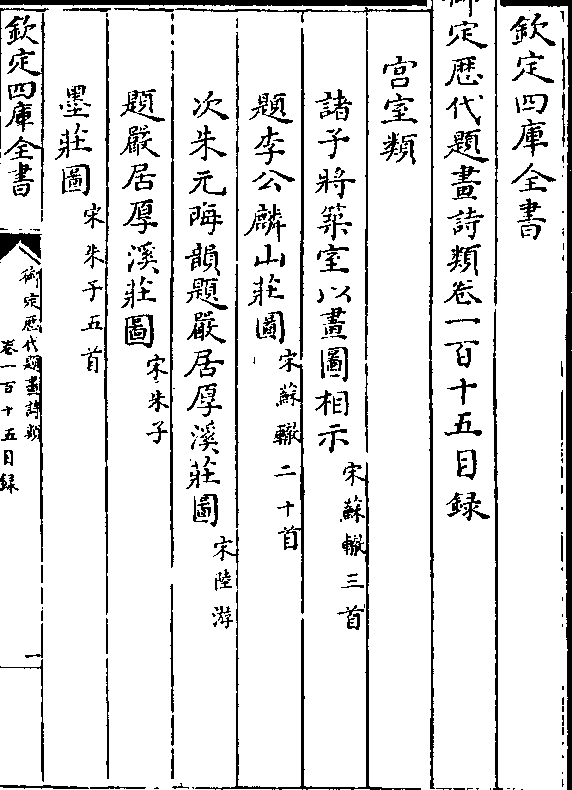 欽定四庫全書
御定歴代題畫詩類卷一百十五目録
宮室類
諸子將築室以畫圖相示宋蘇轍三首
題李公麟山莊圖宋蘇轍二十首
次朱元晦韻題嚴居厚溪莊圖宋陸游
題嚴居厚溪莊圖宋朱子
墨莊圖宋朱子五首
欽定四庫全書
御定歴代題畫詩類
卷一百十五目録
一